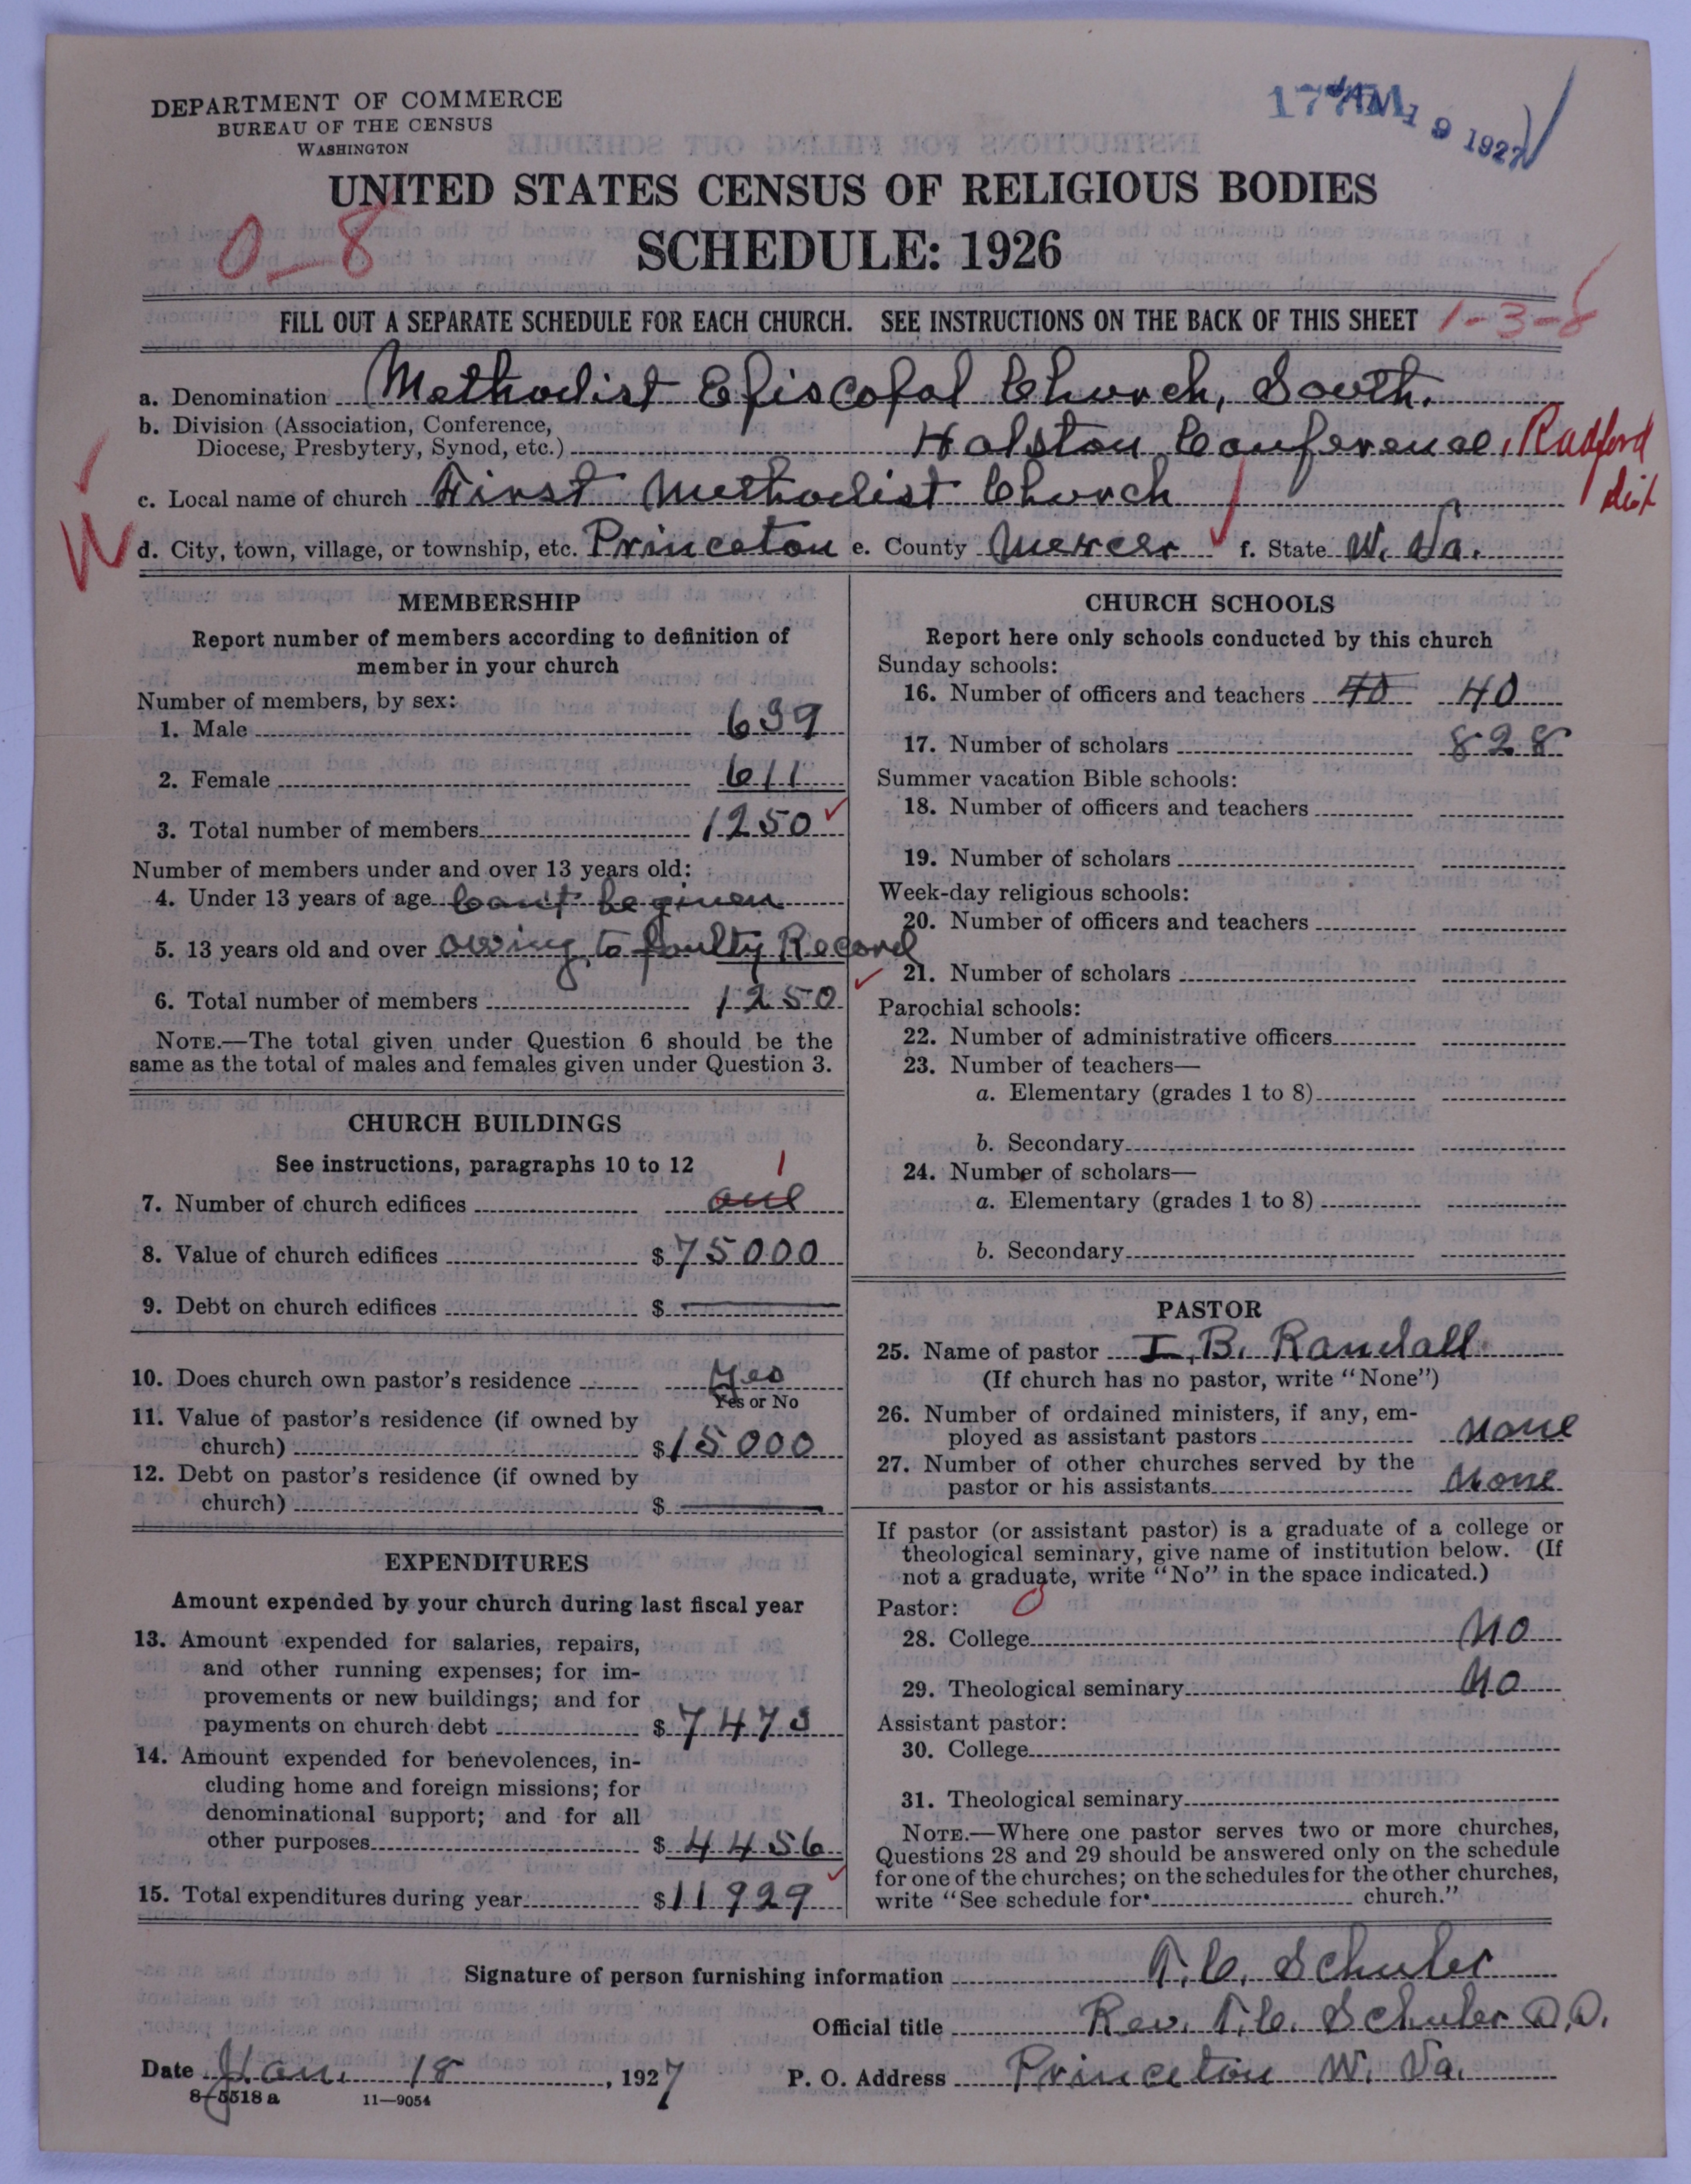 DEPARTMENT OF COMMERCE
BUREAU OF THE CENSUS
WASHINGTON
JAN 19 1927
UNITED STATES CENSUS OF RELIGIOUS BODIES
0-8
SCHEDULE: 1926
FILL OUT A SEPARATE SCHEDULE FOR EACH CHURCH. SEE INSTRUCTIONS ON THE BACK OF THIS SHEET 1-3-8
a. Denomination Methodist Episcopal Church, South.
b. Division (Association, Conference,
Diocese, Presbytery, Synod, etc.) Holston Conference, Radford dist
c. Local name of church First Methodist Church
d. City, town, village, or township, etc. Princeton e. County Mercer f. State W. Va.
MEMBERSHIP
Report number of members according to definition of
member in your church
Number of members, by sex:
1. Male 639
2. Female 611
3. Total number of members 1250
Number of members under and over 13 years old:
4. Under 13 years of age can't be given
5. 13 years old and over owing to faulty Record
6. Total number of members 1250
NOTE.—The total given under Question 6 should be the
same as the total of males and females given under Question 3.
CHURCH BUILDINGS
See instructions, paragraphs 10 to 12
1
7. Number of church edifices one
8. Value of church edifices $75000
9. Debt on church edifices $
10. Does church own pastor's residence Yes
Yes or No
11. Value of pastor's residence (if owned by
church) $15000
12. Debt on pastor's residence (if owned by
church) $
EXPENDITURES
Amount expended by your church during last fiscal year
13. Amount expended for salaries, repairs,
and other running expenses; for im-
provements or new buildings; and for
payments on church debt $7473
14. Amount expended for benevolences, in-
cluding home and foreign missions; for
denominational support; and for all
other purposes $4456
15. Total expenditures during year $11929
CHURCH SCHOOLS
Report here only schools conducted by this church
Sunday schools:
16. Number of officers and teachers 40 40
17. Number of scholars 828
Summer vacation Bible schools:
18. Number of officers and teachers
19. Number of scholars
Week-day religious schools:
20. Number of officers and teachers
21. Number of scholars
Parochial schools:
22. Number of administrative officers
23. Number of teachers—
a. Elementary (grades 1 to 8)
b. Secondary
24. Number of scholars—
a. Elementary (grades 1 to 8)
b. Secondary
PASTOR
25. Name of pastor I. B. Randall
(If church has no pastor, write "None")
26. Number of ordained ministers, if any, em-
ployed as assistant pastors None
27. Number of other churches served by the
pastor or his assistants None
If pastor (or assistant pastor) is a graduate of a college or
theological seminary, give name of institution below. (If
not a graduate, write "No" in the space indicated.)
Pastor: 0
28. College No
29. Theological seminary No
Assistant pastor:
30. College
31. Theological seminary
NOTE.—Where one pastor serves two or more churches,
Questions 28 and 29 should be answered only on the schedule
for one of the churches; on the schedules for the other churches,
write "See schedule for church."
Signature of person furnishing information T. C. Schuler
Official title Rev. T. C. Schuler D.D.
Date Jan. 18, 1927 P. O. Address Princeton W. Va.
8-5518 a 11—9054